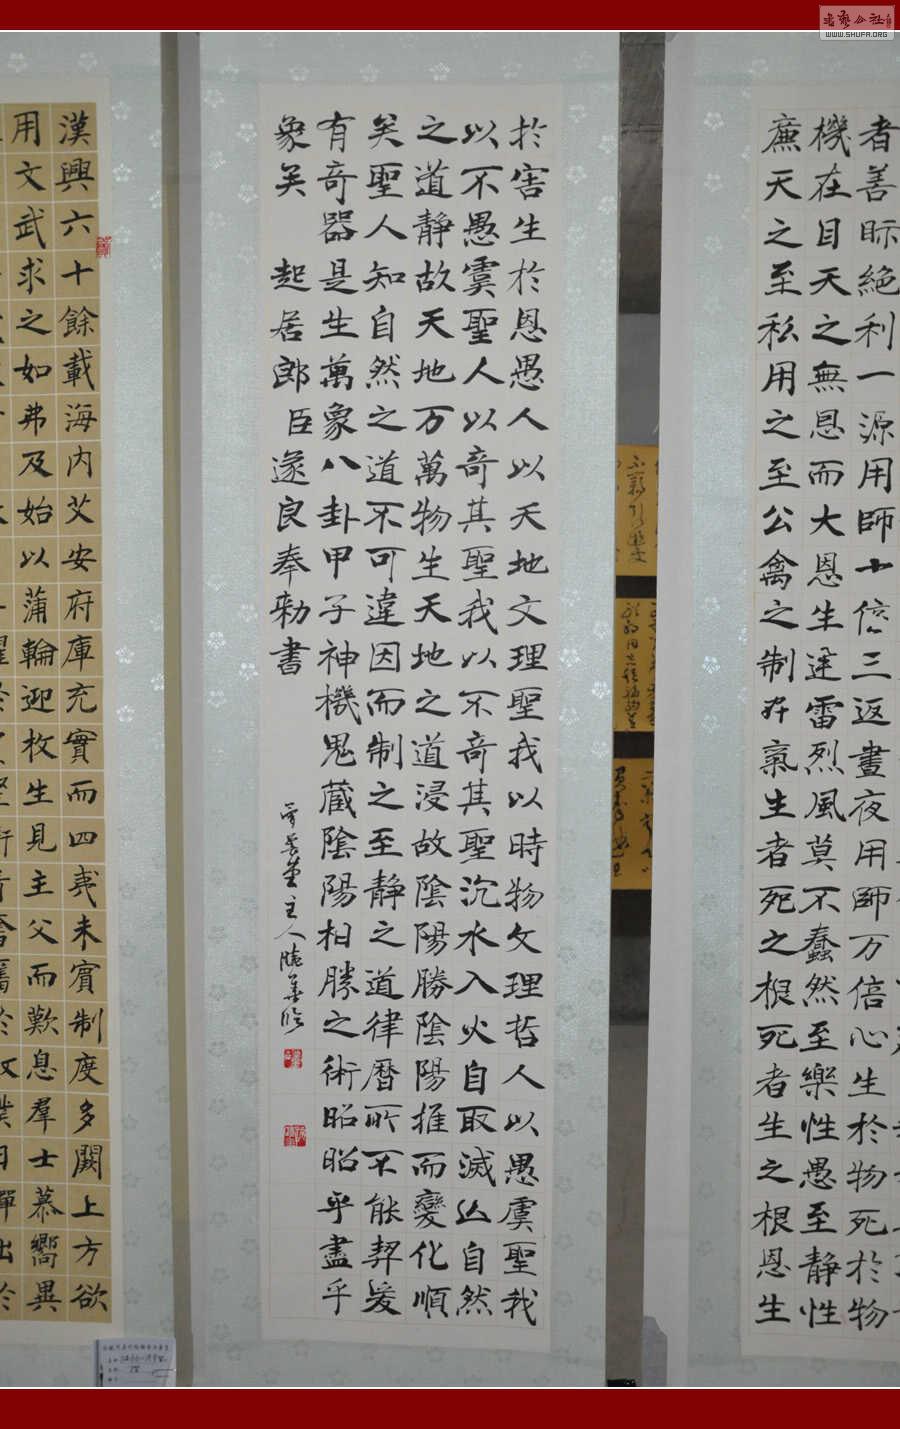 者善眎絶利一源用師十倍三返晝夜用師万倍心生於物死於物
機在目天之無恩而大恩生迅雷烈風莫不蠢然至樂性愚至靜性
廉天之至私用之至公禽之制在氣生者死之根死者生之根恩生
於害生於恩愚人以天地文理聖我以時物文理哲人以愚虞聖我
以不愚虞聖人以奇其聖我以不奇其聖沉水入火自取滅亡自然
之道靜故天地万萬物生天地之道浸故陰陽勝陰陽推而變化順
矣聖人知自然之道不可違因而制之至靜之道律曆所不能契爰
有奇器是生萬象八卦甲子神機鬼藏陰陽相勝之術昭昭乎盡乎
象矣 起居郎臣遂良奉勑書
主人
漢興六十餘載海内艾安府庫充實而四夷未賓制度多闕上方欲
用文武求之如弗及始以蒲輪迎枚生見主父而歎息羣士慕嚮異
WWW.SHUFA.ORG